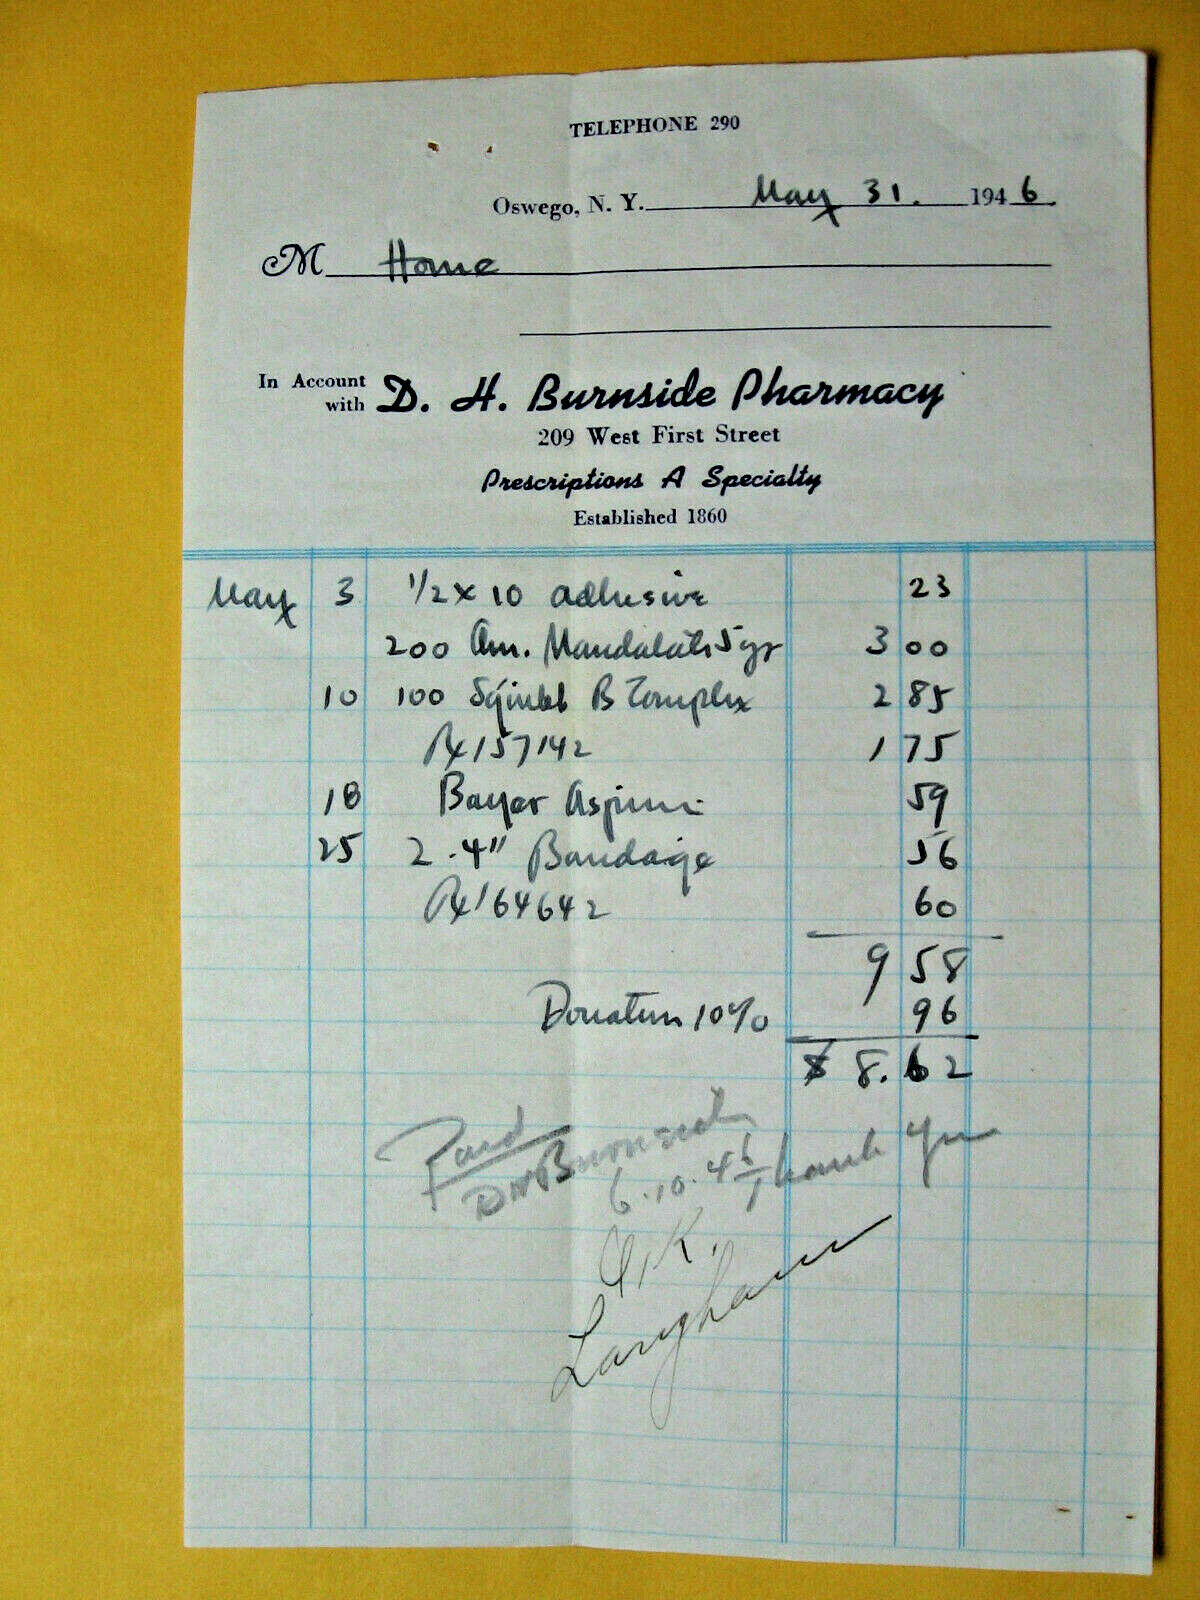 TELEPHONE 290
Oswego, N. Y. May 31. 1946.
M Home
In Account with D. H. Burnside Pharmacy
209 West First Street
Prescriptions A Specialty
Established 1860
May 3 1/2 x 10 adhesive 23
200 Am. Mandalate 5 gr 3 00
10 100 Squibb B Complex 2 85
Rx 157142 1 75
18 Bayer Aspirin 59
25 2 - 4" Bandage 56
Rx 164642 60
9 58
Donation 10% 96
$ 8.62
Paid
DHBurnside
6.10.46 Thank You
O.K.